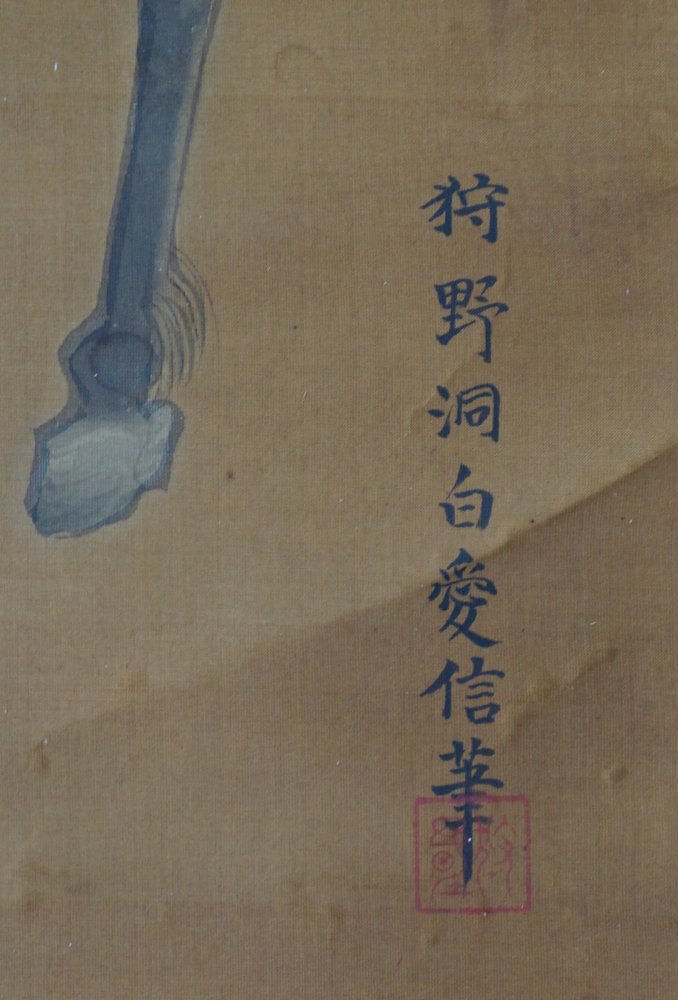 狩野洞白愛信筆